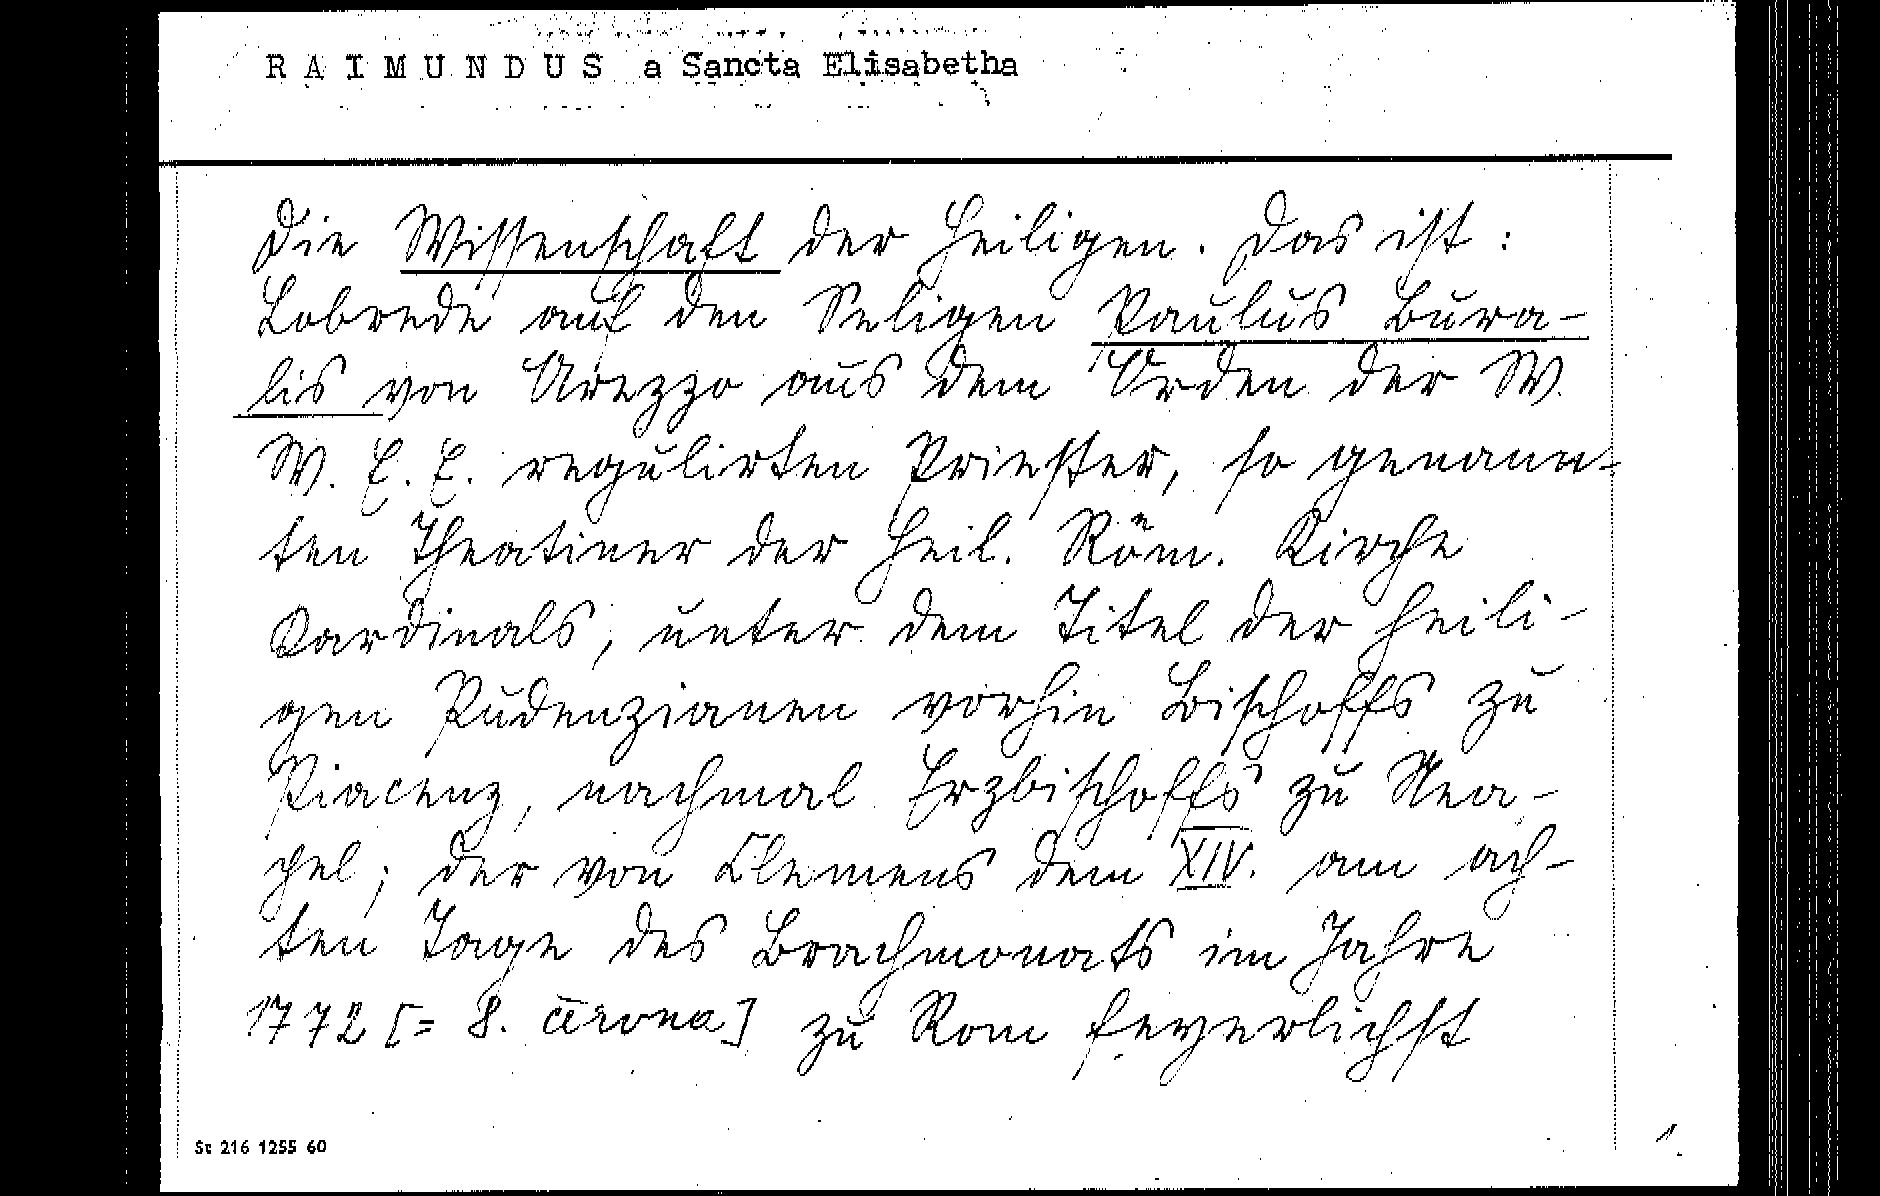 RAIMUNDUS a Sancta Elisabetha
Die Wissenschaft der Heiligen. Das ist:
Lobrede auf den Seligen Paulus Bura-
lis von Arezzo aus dem Orden der W.
W. E. E. regulirten Priester, so genann-
ten Theatiner der Heil. Röm. Kirche
Kardinals, unter dem Titel der Heili-
gen Pudenzianen vorhin Bischoffs zu
Piacenz, nachmal Erzbischoffs zu Nea-
pel; der von Clemens dem XIV. am ach-
ten Tage des Brachmonats im Jahre
1772 [= 8. června] zu Rom feyerlichst
St 216 1255 60